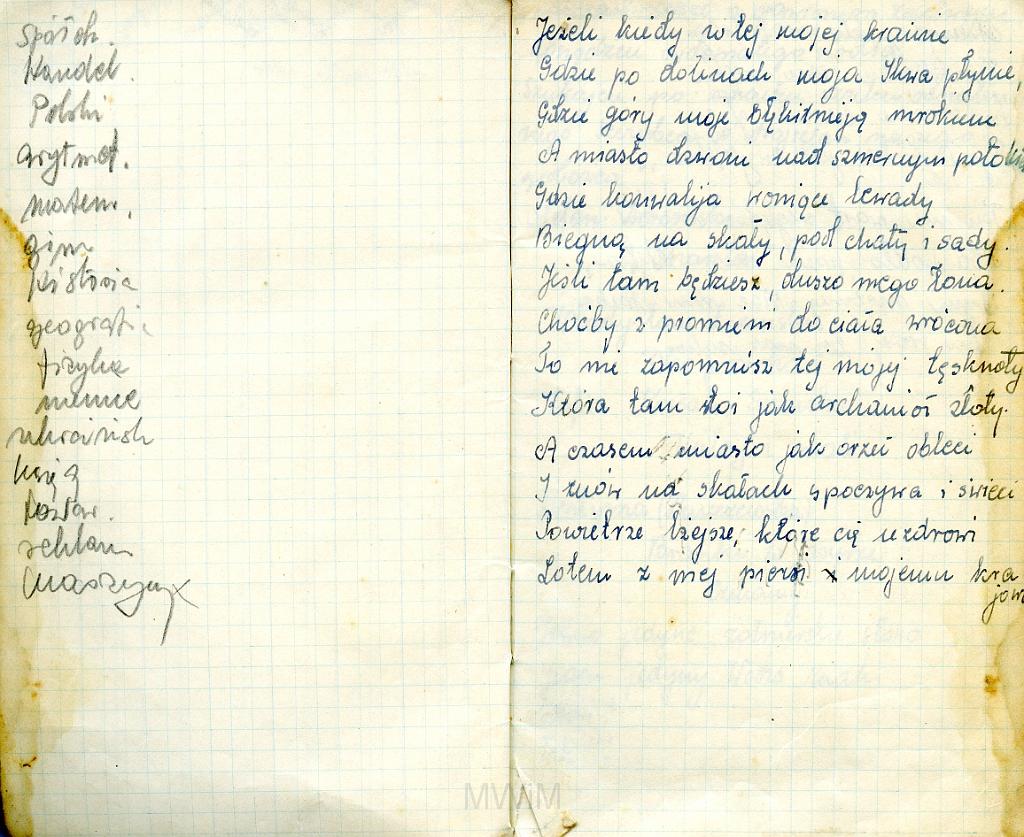 Spółdz.
Handel.
Polski
arytmet.
matem.
gim
historia
geografia
fizyka
niemie
ukraińsk
księg
Towar.
reklam
Maszyny
Jeżeli kiedy w tej mojej krainie
Gdzie po dolinach moja Ikwa płynie,
Gdzie góry moje błękitnieją mrokiem
A miasto dzwoni nad szmernym potokiem
Gdzie konwalija woniące lewady
Biegną na skały, pod chaty i sady.
Jeśli tam będziesz, duszo mego łona.
Choćby z promieni do ciała wrócona
To nie zapomnisz tej mojej tęsknoty
Która tam stoi jak archanioł złoty.
A czasem miasto jak orzeł obleci
I znów na skałach spoczywa i świeci
Powietrze lżejsze, które cię uzdrowi
Lotem z mej piersi mojemu kra
jowi
MWiM